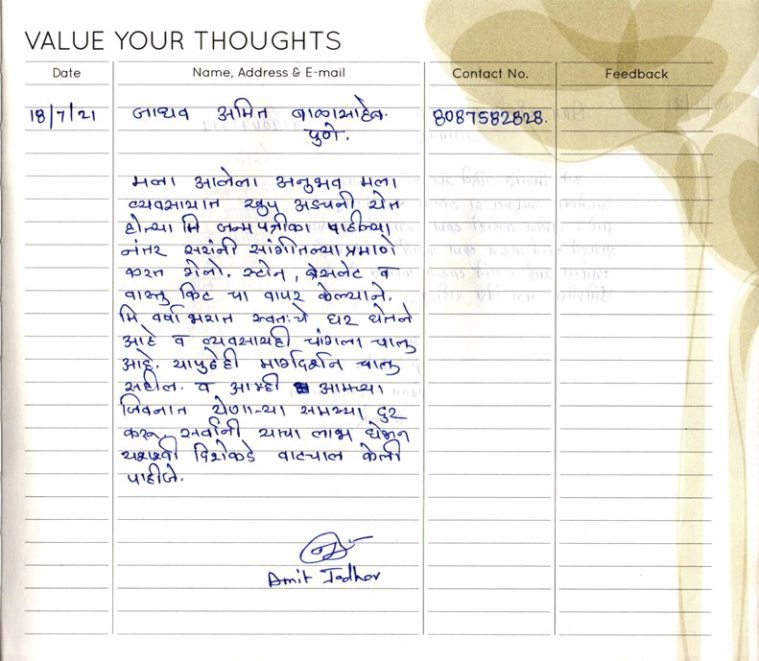 VALUE YOUR THOUGHTS
Date Name, Address & E-mail Contact No. Feedback
18/7/21 जाधव अमित बाळासाहेब. 8087582828.
पुणे.
मला आलेला अनुभव मला
व्यवसायात खुप अडचनी येत
होत्या मि जन्मपत्रीका पाहील्या
नंतर सरांनी सांगीतल्या प्रमाणे
करत गेलो. स्टोन, ब्रेसलेट व
वास्तु किट चा वापर केल्याने.
मि वर्षाभरात स्वतःचे घर घेतले
आहे व व्यवसायही चांगला चालु
आहे. यापुढेही मार्गदर्शन चालु
राहील. व आम्ही आमच्या
जिवनात येणाऱ्या समस्या दुर
करू. सर्वांनी याचा लाभ घेऊन
यशस्वी दिशेकडे वाटचाल केली
पाहीजे.
Amit Jadhav